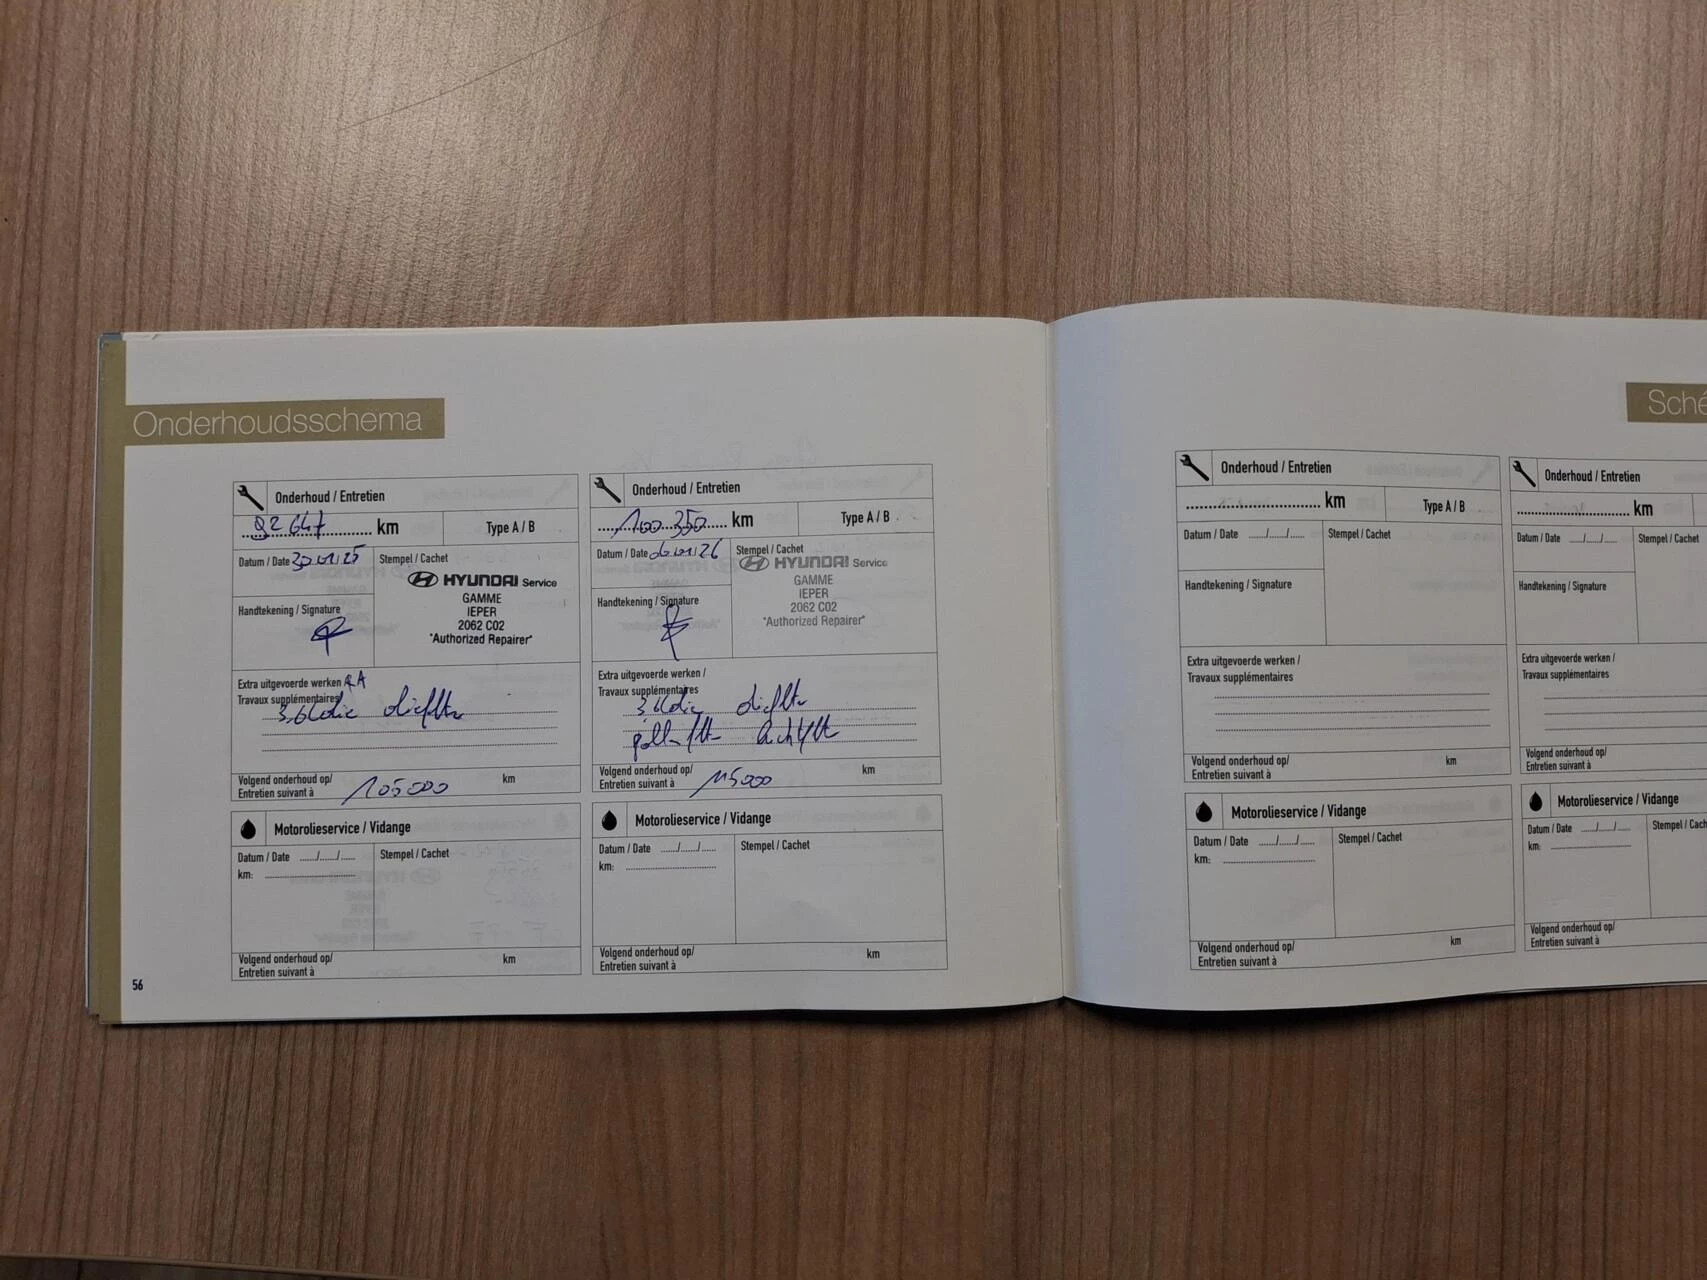 Onderhoudsschema
Onderhoud / Entretien
92 647 km
Type A / B
Datum / Date 30/01/25
Stempel / Cachet
HYUNDAI Service
GAMME
IEPER
2062 C02
"Authorized Repairer"
Handtekening / Signature
Extra uitgevoerde werken /
Travaux supplémentaires
Volgend onderhoud op/
Entretien suivant à
105000 km
Motorolieservice / Vidange
Datum / Date ....../....../......
Stempel / Cachet
km:
Volgend onderhoud op/
Entretien suivant à
km
Onderhoud / Entretien
100.350 km
Type A / B
Datum / Date 06/01/26
Stempel / Cachet
HYUNDAI Service
GAMME
IEPER
2062 C02
"Authorized Repairer"
Handtekening / Signature
Extra uitgevoerde werken /
Travaux supplémentaires
Volgend onderhoud op/
Entretien suivant à
115000 km
Motorolieservice / Vidange
Datum / Date ....../....../......
Stempel / Cachet
km:
Volgend onderhoud op/
Entretien suivant à
km
56
Sché
Onderhoud / Entretien
km
Type A / B
Datum / Date ....../....../......
Stempel / Cachet
Handtekening / Signature
Extra uitgevoerde werken /
Travaux supplémentaires
Volgend onderhoud op/
Entretien suivant à
km
Motorolieservice / Vidange
Datum / Date ....../....../......
Stempel / Cachet
km:
Volgend onderhoud op/
Entretien suivant à
km
Onderhoud / Entretien
km
Datum / Date ....../....../......
Stempel / Cachet
Handtekening / Signature
Extra uitgevoerde werken /
Travaux supplémentaires
Volgend onderhoud op/
Entretien suivant à
Motorolieservice / Vidange
Datum / Date ....../....../......
Stempel / Cach
km:
Volgend onderhoud op/
Entretien suivant à